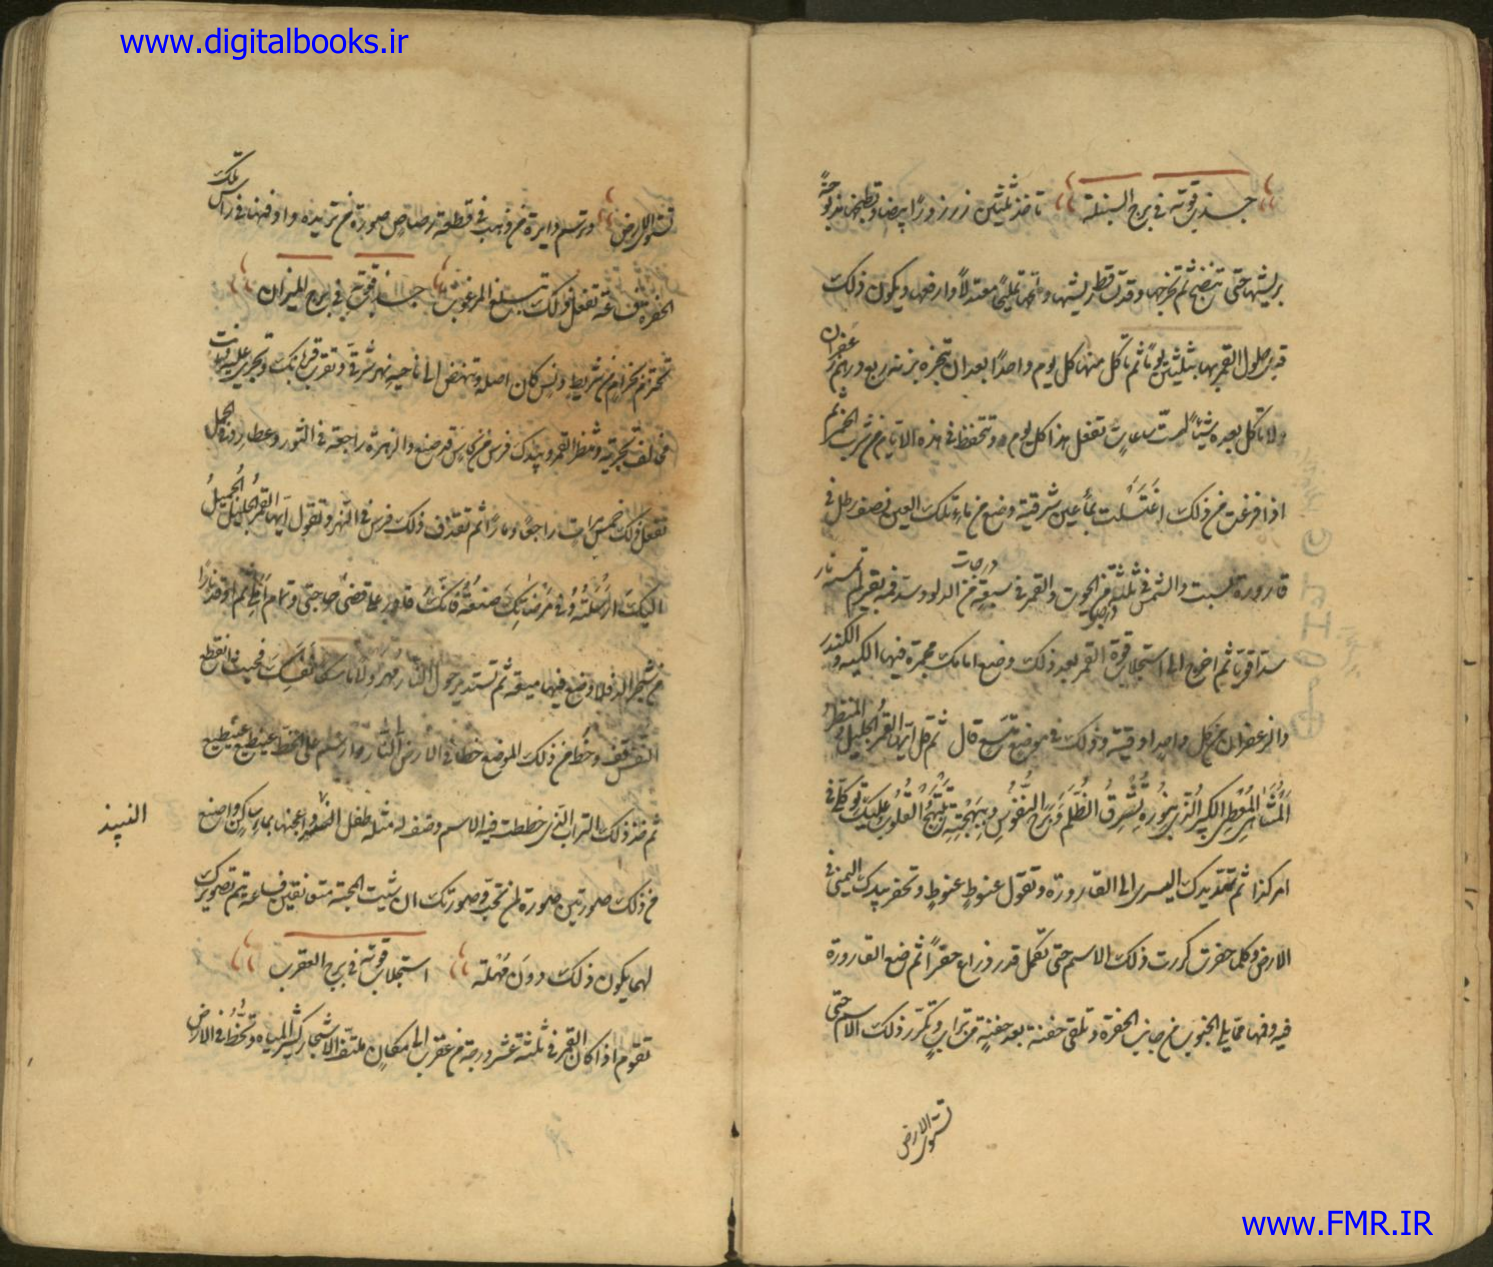 www.digitalbooks.ir
جذب قوته في برج السنبلة تأخذ ثلثين زرزورًا بيضا وتطبخها مذبوحةً
بريشها حتى تنضج ثم تخرجها وقد تساقط ريشها وتملحها تمليحًا معتدلًا وارفعها ويكون ذلك
قبل حلول القمر بها بثلثين يومًا ثم تأكل منها كل يوم واحدًا بعد ان تبخره بزنة ربع درهم زعفران
ولا تأكل بعده شيئًا لست ساعات تفعل هذا كل يوم وتتحفظ في هذه الايام من شرب الخمر ثم
اذا فرغت من ذلك اغتسلت بماء عين شرقية وضع من ماء تلك العين نصف رطل في
قارورة لسبت والشمس في ثلثة من الحوت والقمر في سبعة درجات من الدلو وسد فمه بقير لم تمسه نار
سدا قويًا ثم اخرج الى استجلاب قوة القمر بعد ذلك وضع امامك مجمرة فيها الكيه والكندر
والزعفران من كل واحد اوقية وذلك في موضع متسع قال ثم قل ايها القمر الجليل في المنظر
المتناهي المعطي الكبير الذي بنوره تشرق الظلم وتبرح النفوس وببهجته تبتهج القلوب عليك توكلي في
امر كذا ثم تمد يدك اليسرى الى القارورة وتقول عنوط عنوط وتحفر بيدك اليمنى في
الارض وكلما حفرت كررت ذلك الاسم حتى تكمل قدر ذراع حفرًا ثم ضع القارورة
فيه وفها مما يلي الجنوب من جانب الحفرة وتلقي حفنة بعد حفنة من تراب وتكرر ذلك الاسم حتى
تستوي الارض
تستوي الارض وترسم دايرة من ذهب في قطعة رصاص صورة من تريده وادفنها في راس تلك
الحفرة في ساعة تفعل ذلك تبلغ المرغوب جذب قوته في برج الميزان
فمخالف تجربته ونظر القمر وبيدك فرس من نحاس قد صنع والزهرة راجعة في الثور وعطارد في الحمل
تفعل ذلك خمس مرات راجعًا ومارًا ثم تقذف ذلك فرس في النهر وتقول ايها القمر الجليل الجميل
اليك ارسلته وفي مرضاتك صنعته فانك قادر على قضاء حاجتي وتمام املي ثم اوقد نارًا
من شجر الدفلا وضع فيها ميعة ثم تستدير حول النار مهرولًا ماسكًا نفسك فحيث انقطع
النفس قف وخط من ذلك الموضع خطًا في الارض الى النار وارسم على الخط عيطيع عيطيع
ثم خذ ذلك التراب الذي خططت فيه الاسم وضف له مثله طفل النسيد واعجنها بماء
من ذلك صورتين صورة لمن تحب وصورتك ان شيت المحبة متعانقين في ساعة يتم تصويرك
لهما يكون ذلك دون مهلة استجلاب قوته في برج العقرب
تقوم اذا كان القمر في ثلثة عشر درجة من عقرب الى مكان ملتف الاشجار كثير المياه وتخط في الارض
www.FMR.IR